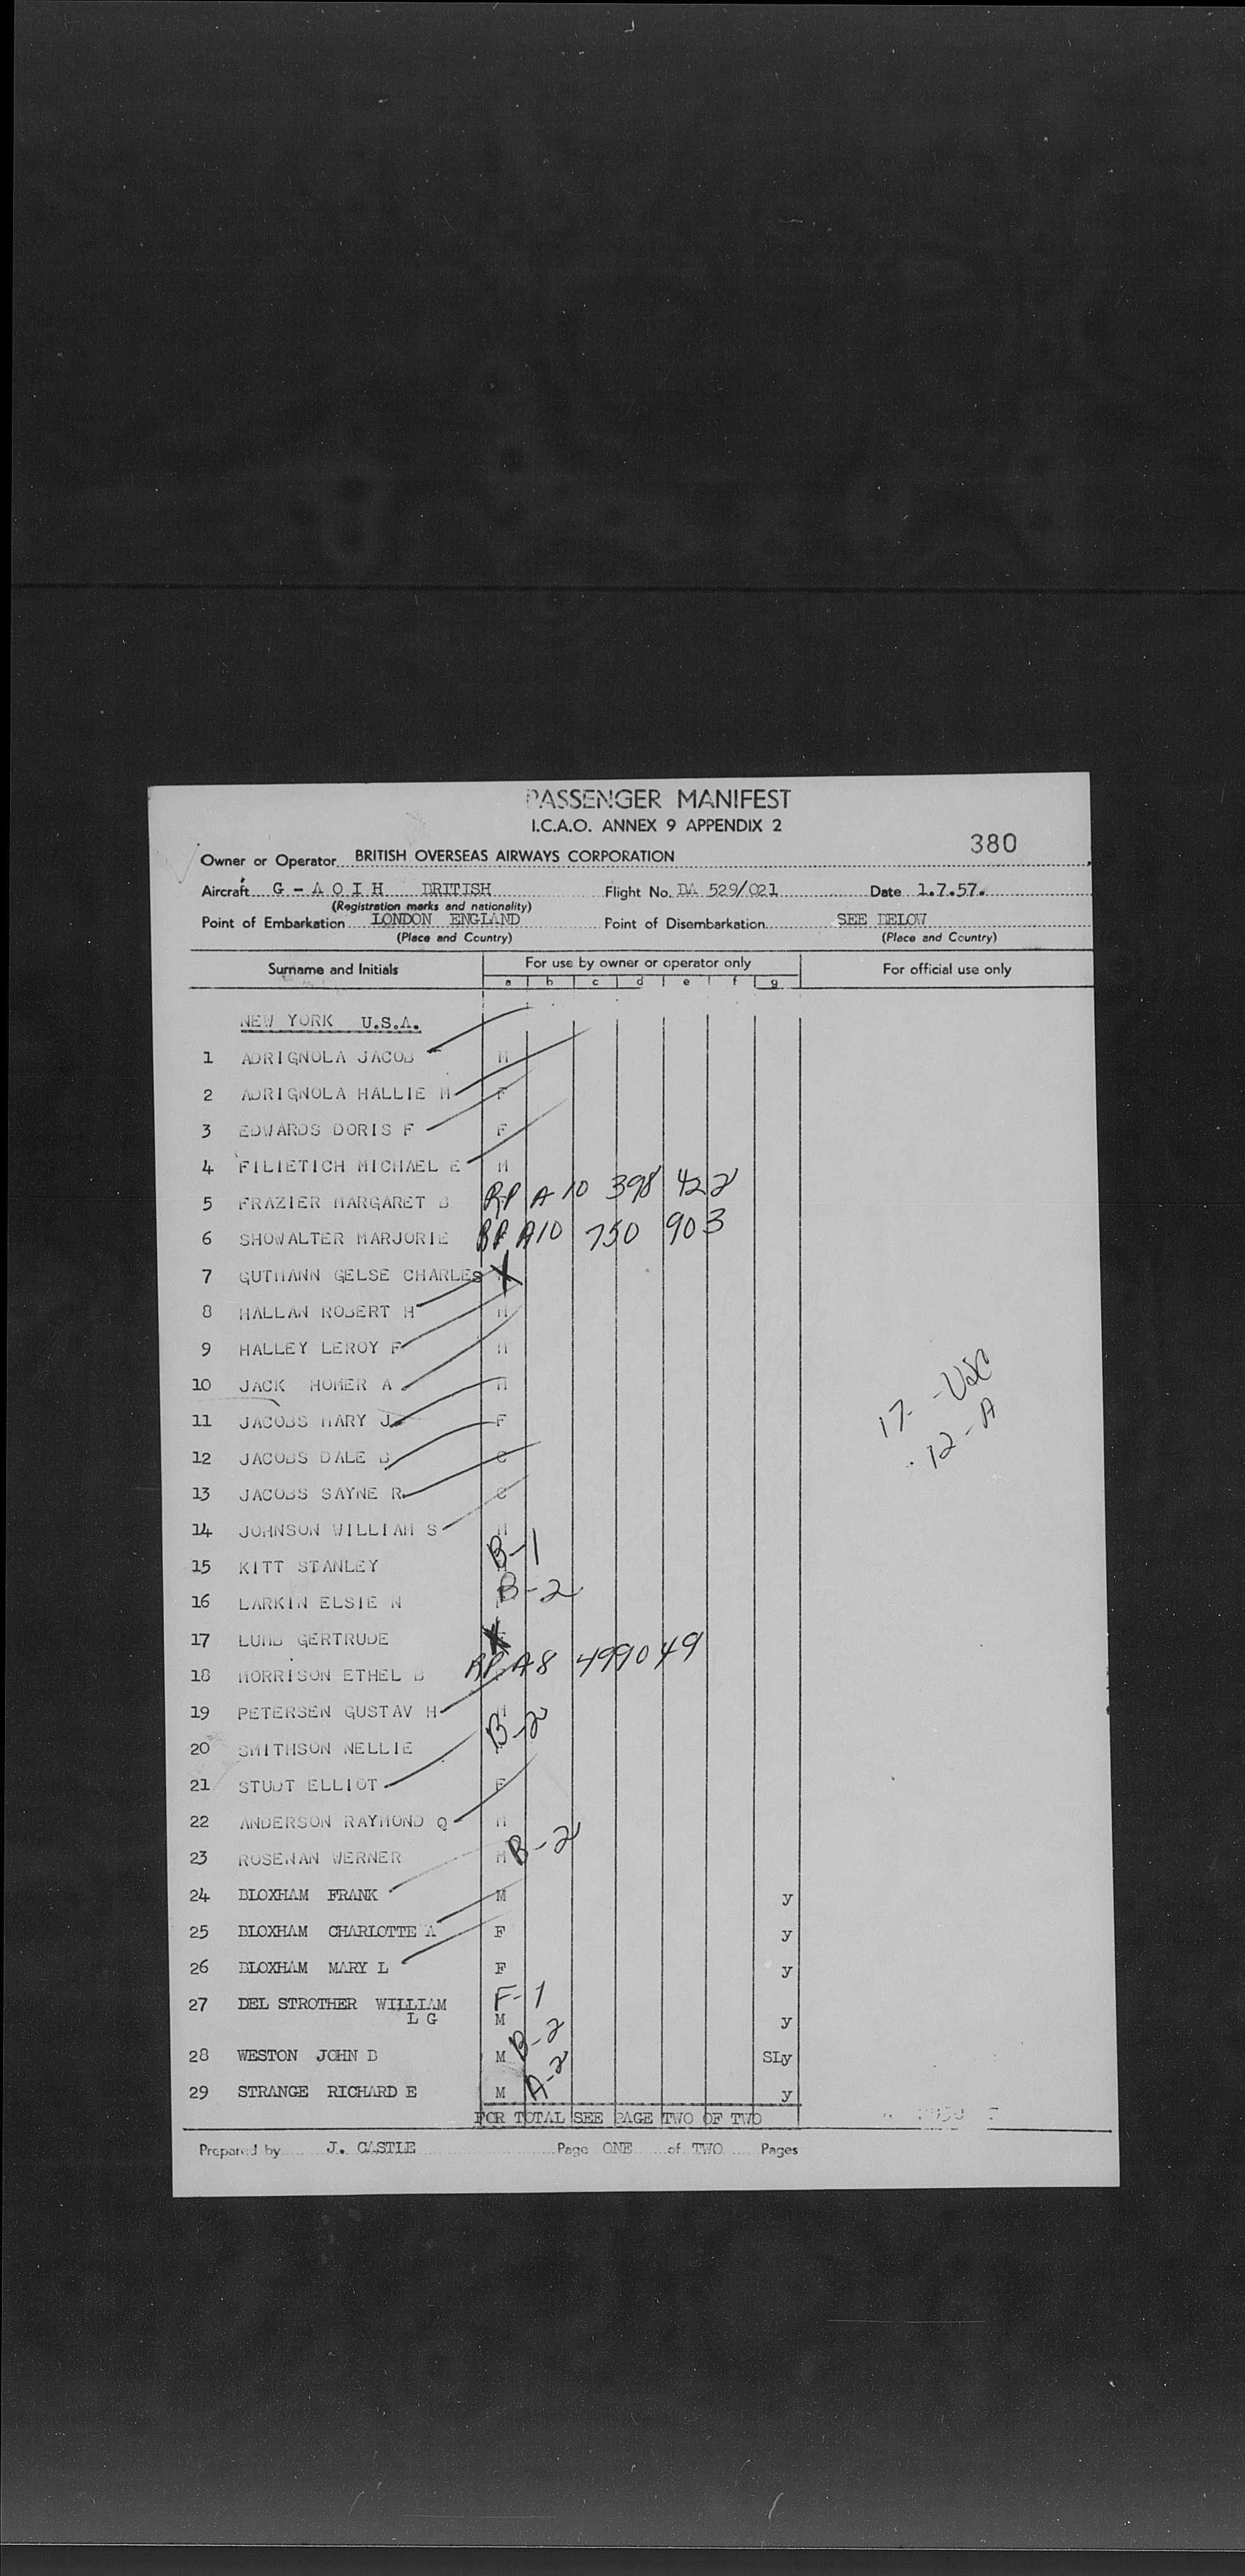 PASSENGER MANIFEST
I.C.A.O. ANNEX 9 APPENDIX 2
380
Owner or Operator BRITISH OVERSEAS AIRWAYS CORPORATION
Aircraft G - A O I H BRITISH Flight No. BA 529/021 Date 1.7.57.
(Registration marks and nationality)
Point of Embarkation LONDON ENGLAND Point of Disembarkation SEE BELOW
(Place and Country) (Place and Country)
Surname and Initials For use by owner or operator only For official use only
a b c d e f g
NEW YORK U.S.A.
1 ADRIGNOLA JACOB M
2 ADRIGNOLA HALLIE M F
3 EDWARDS DORIS F F
4 FILIETICH MICHAEL E M
5 FRAZIER MARGARET B RP A 10 398 422
6 SHOWALTER MARJORIE RP A10 750 903
7 GUTMANN GELSE CHARLES X
8 HALLAN ROBERT H M
9 HALLEY LEROY F M
10 JACK HOMER A M
11 JACOBS MARY J F
12 JACOBS DALE B C
13 JACOBS SAYNE R C
14 JOHNSON WILLIAM S M
15 KITT STANLEY B-1
16 LARKIN ELSIE N B-2
17 GERTRUDE X
18 MORRISON ETHEL B RP A8 499049
19 PETERSEN GUSTAV H M
20 SMITHSON NELLIE B-2
21 STUDT ELLIOT F
22 ANDERSON RAYMOND Q M
23 ROSENAN WERNER M B-2
24 BLOXHAM FRANK M y
25 BLOXHAM CHARLOTTE A F y
26 BLOXHAM MARY L F y
27 DEL STROTHER WILLIAM F-1
L G M y
28 WESTON JOHN B M B-2 SLy
29 STRANGE RICHARD E M A-2 y
17 - USC
12 - A
FOR TOTAL SEE PAGE TWO OF TWO
Prepared by J. CASTLE Page ONE of TWO Pages